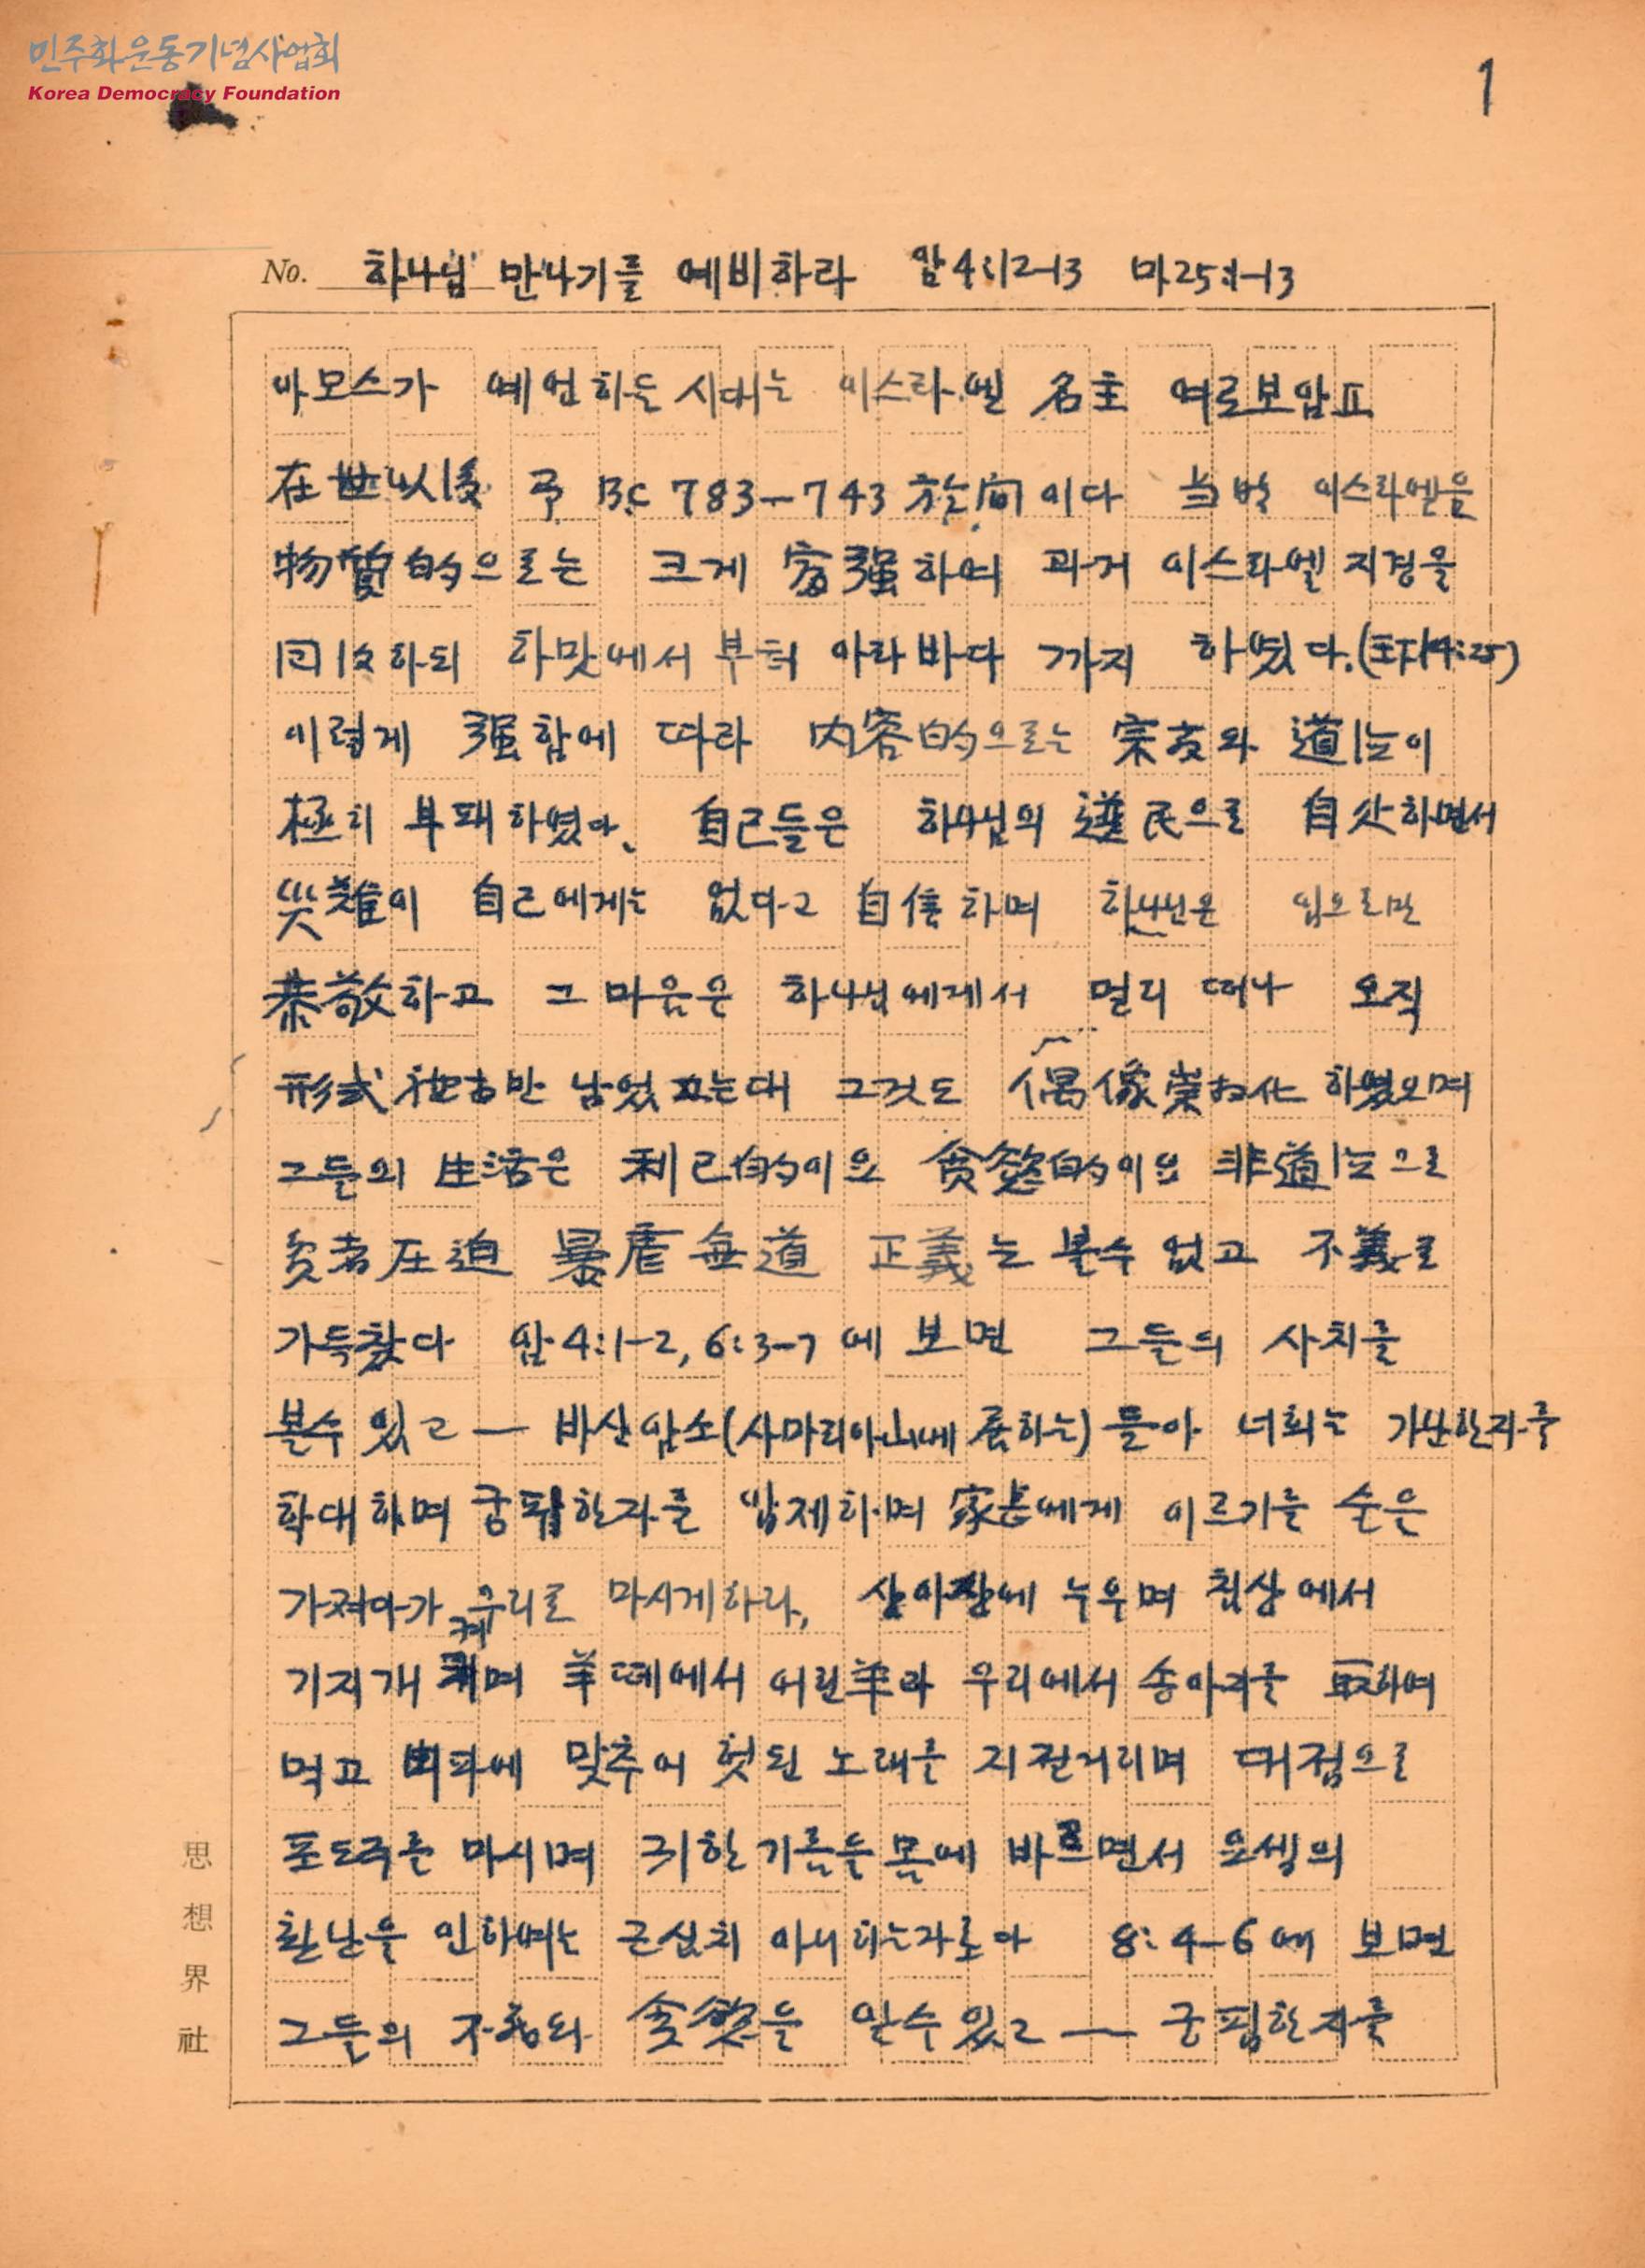 민주화운동기념사업회
Korea Democracy Foundation
1
No. 하나님 만나기를 예비하라 암4:12-13 마25:1-13
아모스가 예언하든 시대는 이스라엘 名主 여로보암Ⅱ
在世 BC 783-743 이다 이스라엘을
物質的으로는 크게 富强하여 과거 이스라엘 지경을
回收하되 하맛에서 부터 아라바다 까지 하였다.(王下14:25)
이렇게 强함에 따라 内容的으로는 宗教와 道德이
極히 부패하였다. 自己들은 하나님의 選民으로 自処하면서
災難이 自己에게는 없다고 自信하며 하나님은 입으로만
恭敬하고 그 마음은 하나님에게서 멀리 떠나 오직
形式 만 남었 는대 그것도 偶像崇拜化 하였으며
그들의 生活은 利己的이요 貪慾的이요 非道德으로
貧者圧迫 暴虐無道 正義는 볼수 없고 不義로
가득찼다 암4:1-2, 6:3-7 에 보면 그들의 사치를
볼수 있고 — 바산암소(사마리아山에 居하는) 들아 너희는 가난한자를
학대하며 궁핍한자를 압제하며 家長에게 이르기를 술을
가져다가 우리로 마시게하라, 상아상에 누우며 침상에서
기지개 켜며 羊떼에서 어린羊과 우리에서 송아지를 取하여
먹고 비파에 맞추어 헛된 노래를 지절거리며 대접으로
포도주를 마시며 귀한 기름을 몸에 바르면서 요셉의
환난을 인하여는 근심치 아니하는자로다 8:4-6에 보면
그들의 不義와 貪慾을 알수있고 — 궁핍한자를
思想界社